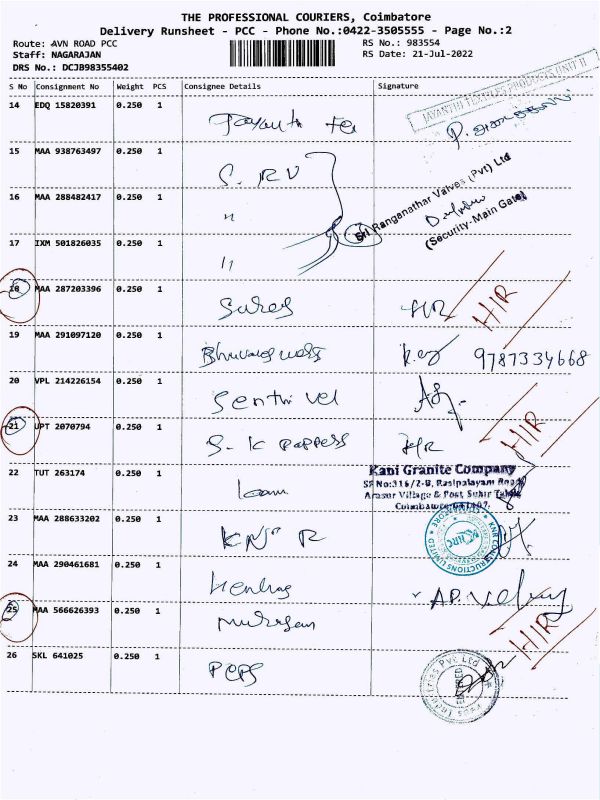 THE PROFESSIONAL COURIERS, Coimbatore
Delivery Runsheet - PCC - Phone No.:0422-3505555 - Page No.:2
Route: AVN ROAD PCC RS No.: 983554
Staff: NAGARAJAN RS Date: 21-Jul-2022
DRS No.: DCJB98355402
S No Consignment No Weight PCS Consignee Details Signature
JAYANTHI TEXTILES PRODUCTS UNIT II
14 EDQ 15820391 0.250 1
15 MAA 938763497 0.250 1 S. RV
Sri Ranganathar Valves (Pvt) Ltd
16 MAA 288482417 0.250 1 "
(Security-Main Gate)
17 IXM 501826035 0.250 1 "
18 MAA 287203396 0.250 1 H/R
19 MAA 291097120 0.250 1 9787334668
20 VPL 214226154 0.250 1 Senthil vel
21 UPT 2070794 0.250 1 H/R
Kani Granite Company
SF No:316/2-B, Rasipalayam Road
Arasur Village & Post, Sulur Taluk
22 TUT 263174 0.250 1
23 MAA 288633202 0.250 1 KNR
KNR CONSTRUCTIONS LIMITED
24 MAA 290461681 0.250 1
25 MAA 566626393 0.250 1 Murugan H/R
26 SKL 641025 0.250 1 PEPS
Peps Industries Pvt Ltd